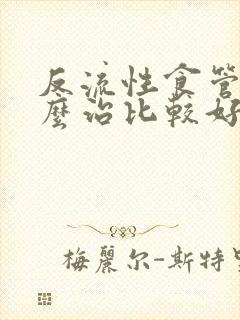 反流性食管
麼治比較好
梅麗尔-斯特里